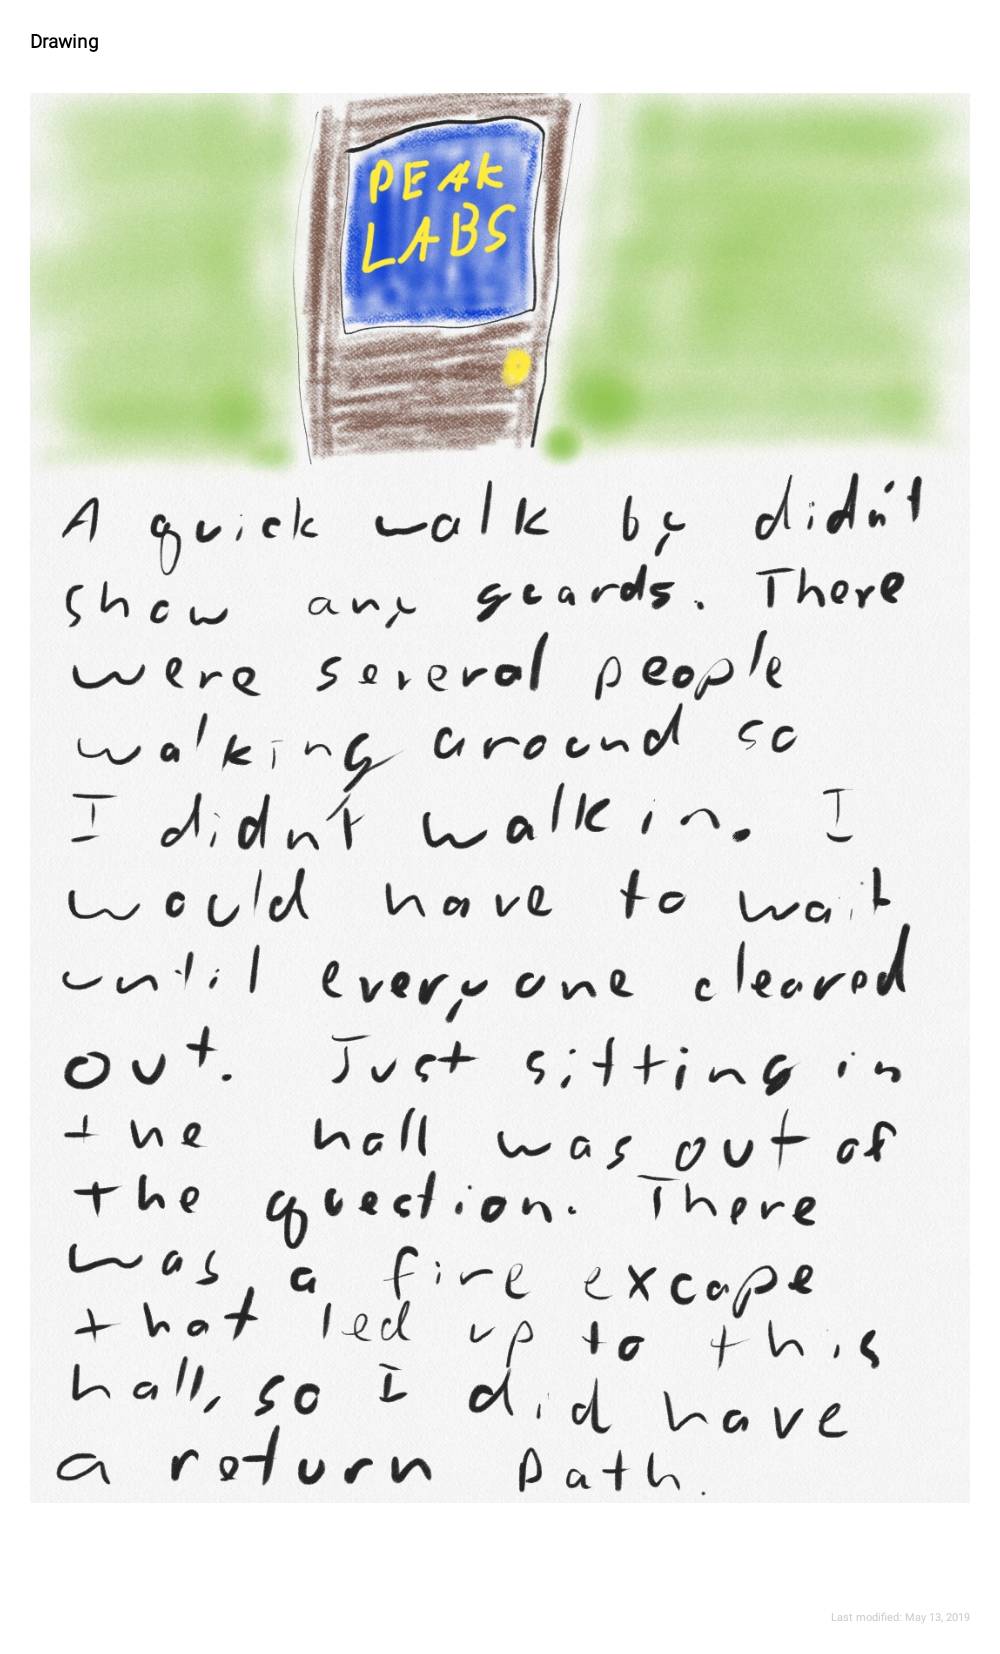 Drawing
PEAK
LABS
A quick walk by didn't
show any guards. There
were several people
walking around so
I didn't walk in. I
would have to wait
until everyone cleared
out. Just sitting in
the hall was out of
the question. There
was a fire excape
that led up to this
hall, so I did have
a return path.
Last modified: May 13, 2019